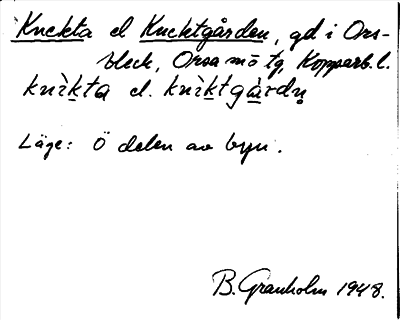 Kneckta el Knecktgården, gd i Ors-
bleck, Orsa mö tg, Kopparb. l.
knìkta el. knìktgàrdṇ
Läge: Ö delen av byn.
B. Granholm 1948.